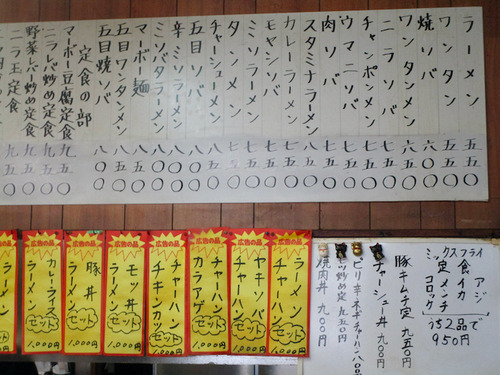 ラーメン 五五〇
ワンタン 五五〇
焼ソバ 六〇〇
ワンタンメン 六五〇
ニラソバ 七五〇
チャンポンメン 七五〇
ウマニソバ 七五〇
肉ソバ 七五〇
スタミナラーメン 八五〇
カレーラーメン 七五〇
モヤシソバ 七五〇
ミソラーメン 七五〇
タンメン 七五〇
チャーシューメン 八五〇
五目ソバ 八〇〇
辛ミソラーメン 八〇〇
ミソバタラーメン 八〇〇
マーボ麺 八五〇
五目ワンタンメン 八五〇
五目焼ソバ 八〇〇
定食の部
マーボー豆腐定食 九五〇
ニラレバ炒め定食 九五〇
野菜レバー炒め定食 九五〇
ニラ玉定食 九五〇
ミックスフライ
定食
アジ
イカ
メンチ
コロッケ
うち2品で
950円
豚キムチ定 九五〇円
チャーシュー丼 九〇〇円
ピリ辛ネギチャーハン 八〇〇
焼肉丼 九〇〇円
広告の品
ラーメン
チャーハン
セット
1,000円
広告の品
ヤキソバ
チャーハン
セット
1,000円
広告の品
チャーハン
カラアゲ
セット
1,000円
広告の品
チャーハン
チキンカツ
セット
1,000円
広告の品
モツ丼
ラーメン
セット
1,000円
広告の品
豚丼
ラーメン
セット
1,000円
広告の品
カレーライス
ラーメン
セット
1,000円